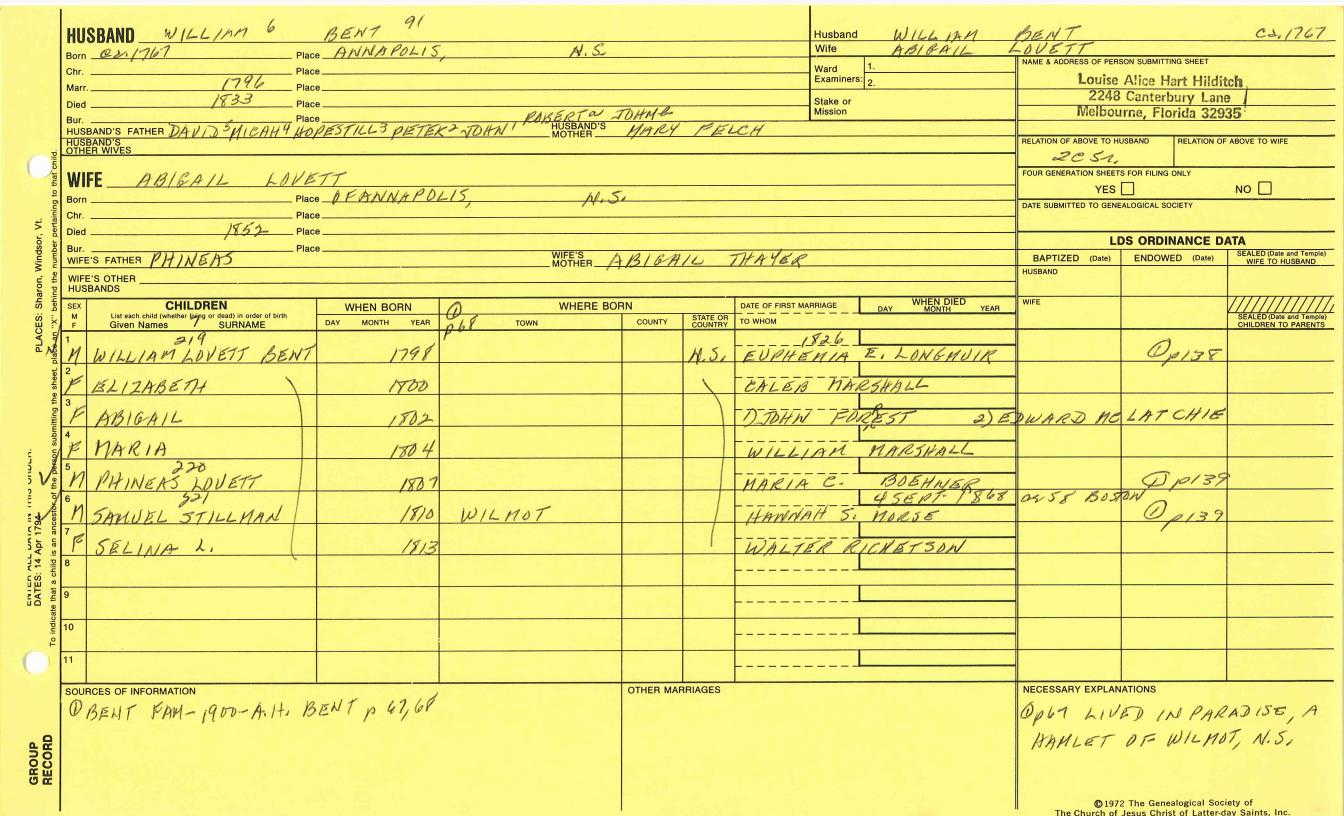 HUSBAND WILLIAM 6 BENT 91
Born ca.1767 Place ANNAPOLIS, N.S.
Chr. Place
Marr. 1796 Place
Died 1833 Place
Bur. Place
ROBERT2 JOHN2
HUSBAND'S FATHER DAVID5 MICAH4 HOPESTILL3 PETER2 JOHN1 HUSBAND'S MOTHER MARY FELCH
HUSBAND'S OTHER WIVES
Husband WILLIAM BENT Ca.1767
Wife ABIGAIL LOVETT
Ward Examiners: 1.
2.
Stake or Mission
NAME & ADDRESS OF PERSON SUBMITTING SHEET
Louise Alice Hart Hilditch
2248 Canterbury Lane
Melbourne, Florida 32935
RELATION OF ABOVE TO HUSBAND RELATION OF ABOVE TO WIFE
2C5r.
FOUR GENERATION SHEETS FOR FILING ONLY
YES NO
DATE SUBMITTED TO GENEALOGICAL SOCIETY
WIFE ABIGAIL LOVETT
Born Place OF ANNAPOLIS, N.S.
Chr. Place
Died 1852 Place
Bur. Place
WIFE'S FATHER PHINEAS WIFE'S MOTHER ABIGAIL THAYER
WIFE'S OTHER HUSBANDS
LDS ORDINANCE DATA
BAPTIZED (Date) ENDOWED (Date) SEALED (Date and Temple) WIFE TO HUSBAND
HUSBAND
WIFE
SEALED (Date and Temple) CHILDREN TO PARENTS
SEX M F
CHILDREN
List each child (whether living or dead) in order of birth
Given Names 7 SURNAME
WHEN BORN
DAY MONTH YEAR
① p68
WHERE BORN
TOWN COUNTY STATE OR COUNTRY
DATE OF FIRST MARRIAGE
TO WHOM
WHEN DIED
DAY MONTH YEAR
1 M 219 WILLIAM LOVETT BENT 1798 N.S. 1826 EUPHEMIA E. LONGMUIR ① p138
2 F ELIZABETH 1800 CALEB MARSHALL
3 F ABIGAIL 1802 1) JOHN FOREST 2) EDWARD MC LATCHIE
4 F MARIA 1804 WILLIAM MARSHALL
5 M 220 PHINEAS LOVETT 1807 MARIA C. BOEHNER ① p139
6 M 221 SAMUEL STILLMAN 1810 WILMOT 4 SEPT 1868 ae 58 BOSTON HANNAH S. MORSE ① p139
7 F SELINA L. 1813 WALTER RICKETSON
8
9
10
11
SOURCES OF INFORMATION
① BENT FAM-1900-A.H. BENT p 67,68
OTHER MARRIAGES
NECESSARY EXPLANATIONS
① p67 LIVED IN PARADISE, A
HAMLET OF WILMOT, N.S.
©1972 The Genealogical Society of
The Church of Jesus Christ of Latter-day Saints, Inc.
GROUP RECORD
ENTER ALL DATA IN THIS ORDER:
DATES: 14 Apr 1794
PLACES: Sharon, Windsor, Vt.
To indicate that a child is an ancestor of the person submitting the sheet, place an "X" behind the number pertaining to that child.